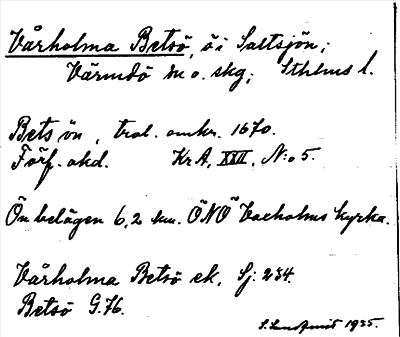 Vårholma Betsö, ö i Saltsjön;
Värmdö sn o. skg; Sthlms l.
Betsön, trol. omkr. 1670.
Förf. okd. KrA, XXII, N:o 5.
Ön belägen 6,2 km. ÖNÖ Vaxholms kyrka.
Vårholma Betsö ek. Sj: 234.
Betsö G.76.
1925.